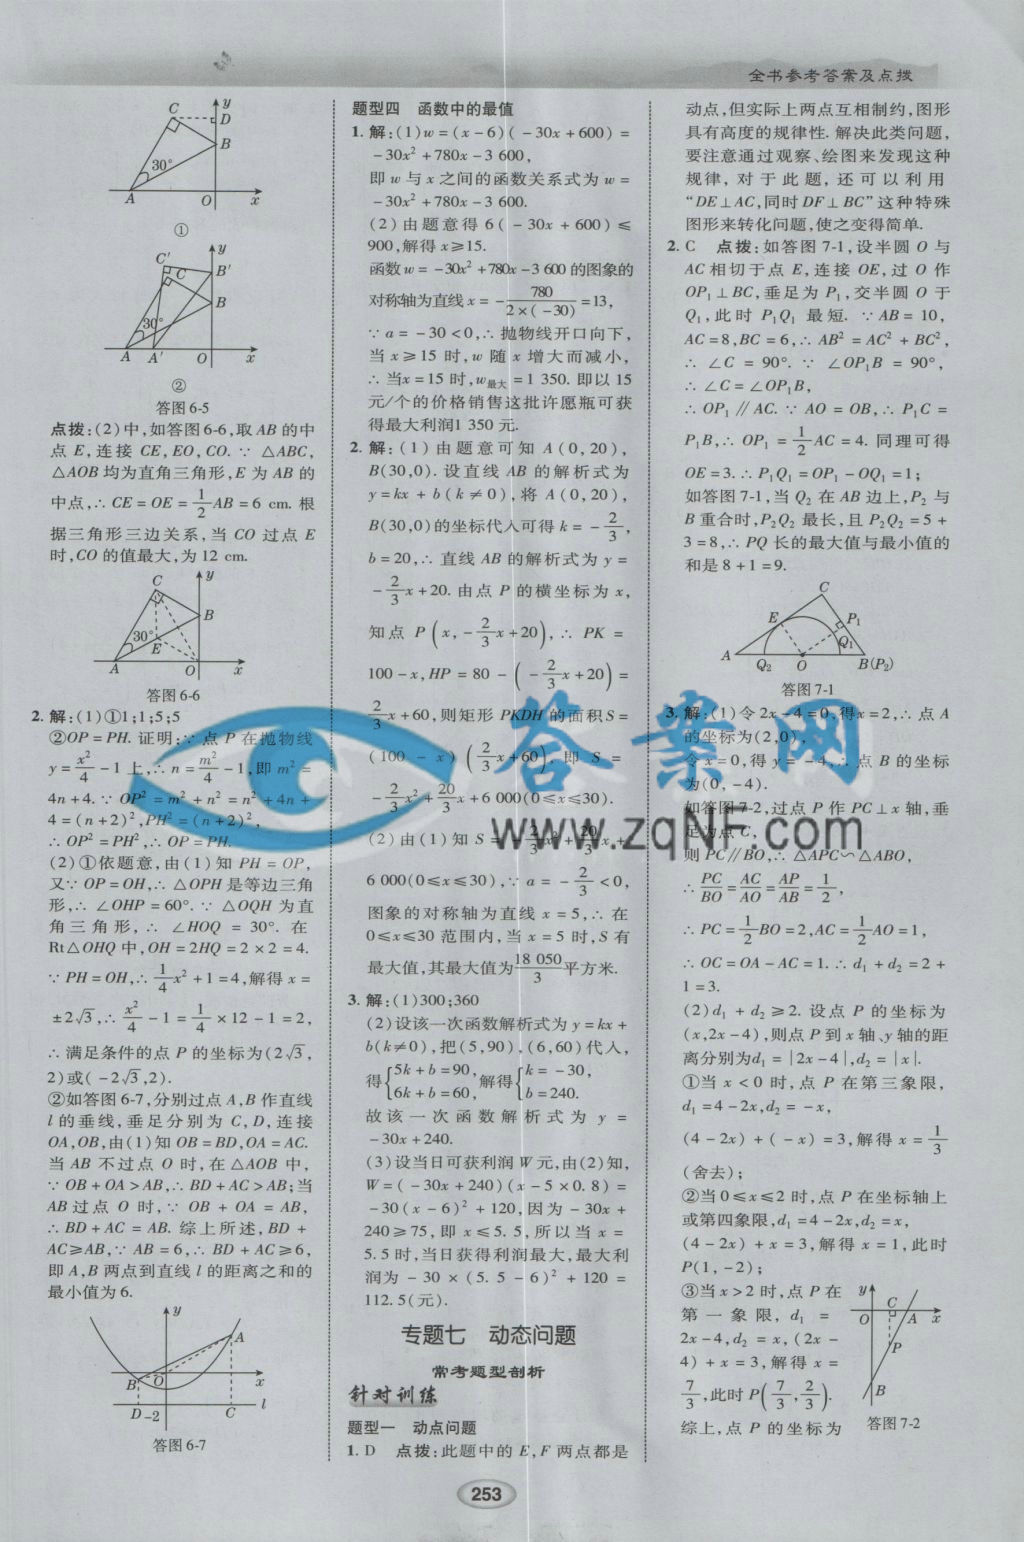 全书参考答案及点拨
C
y
D
B
30°
A
O
x
①
C'
y
B'
C
B
30°
A
A'
O
x
②
答图6-5
点拨:(2)中,如答图6-6,取AB的中
点E,连接CE,EO,CO.∵△ABC,
△AOB均为直角三角形,E为AB的
中点,∴CE=OE=1/2AB=6 cm.根
据三角形三边关系,当CO过点E
时,CO的值最大,为12 cm.
C
y
B
30°
E
A
O
x
答图6-6
2.解:(1)①1;1;5;5
②OP=PH.证明:∵点P在抛物线
y=x²/4-1上,∴n=m²/4-1,即m²=
4n+4.∵OP²=m²+n²=n²+4n+
4=(n+2)²,PH²=(n+2)²,
∴OP²=PH²,∴OP=PH.
(2)①依题意,由(1)知PH=OP,
又∵OP=OH,∴△OPH是等边三角
形,∴∠OHP=60°.∵△OQH为直
角三角形,∴∠HOQ=30°.在
Rt△OHQ中,OH=2HQ=2×2=4.
∵PH=OH,∴1/4x²+1=4,解得x=
±2√3,∴x²/4-1=1/4×12-1=2,
∴满足条件的点P的坐标为(2√3,
2)或(-2√3,2).
②如答图6-7,分别过点A,B作直线
l的垂线,垂足分别为C,D,连接
OA,OB,由(1)知OB=BD,OA=AC.
当AB不过点O时,在△AOB中,
∵OB+OA>AB,∴BD+AC>AB;当
AB过点O时,∵OB+OA=AB,
∴BD+AC=AB.综上所述,BD+
AC≥AB,∵AB=6,∴BD+AC≥6,
即A,B两点到直线l的距离之和的
最小值为6.
y
A
B
O
x
D
-2
C
l
答图6-7
题型四 函数中的最值
1.解:(1)w=(x-6)(-30x+600)=
-30x²+780x-3 600,
即w与x之间的函数关系式为w=
-30x²+780x-3 600.
(2)由题意得6(-30x+600)≤
900,解得x≥15.
函数w=-30x²+780x-3 600的图象的
对称轴为直线x=-780/(2×(-30))=13,
∵a=-30<0,∴抛物线开口向下,
当x≥15时,w随x增大而减小,
∴当x=15时,w最大=1 350.即以15
元/个的价格销售这批许愿瓶可获
得最大利润1 350元.
2.解:(1)由题意可知A(0,20),
B(30,0).设直线AB的解析式为
y=kx+b(k≠0),将A(0,20),
B(30,0)的坐标代入可得k=-2/3,
b=20,∴直线AB的解析式为y=
-2/3x+20.由点P的横坐标为x,
知点P(x,-2/3x+20),∴PK=
100-x,HP=80-(-2/3x+20)=
2/3x+60,则矩形PKDH的面积S=
(100-x)(2/3x+60).即S=
-2/3x²+20/3x+6 000(0≤x≤30).
(2)由(1)知S=-2/3x²+20/3x+
6 000(0≤x≤30),∵a=-2/3<0,
图象的对称轴为直线x=5,∴在
0≤x≤30范围内,当x=5时,S有
最大值,其最大值为18 050/3平方米.
3.解:(1)300;360
(2)设该一次函数解析式为y=kx+
b(k≠0),把(5,90),(6,60)代入,
得{5k+b=90,6k+b=60,解得{k=-30,b=240.
故该一次函数解析式为y=
-30x+240.
(3)设当日可获利润W元,由(2)知,
W=(-30x+240)(x-5×0.8)=
-30(x-6)²+120,因为-30x+
240≥75,即x≤5.5,所以当x=
5.5时,当日获得利润最大,最大利
润为-30×(5.5-6)²+120=
112.5(元).
专题七 动态问题
常考题型剖析
针对训练
题型一 动点问题
1.D 点拨:此题中的E,F两点都是
动点,但实际上两点互相制约,图形
具有高度的规律性.解决此类问题,
要注意通过观察、绘图来发现这种
规律,对于此题,还可以利用
“DE⊥AC,同时DF⊥BC”这种特殊
图形来转化问题,使之变得简单.
2.C 点拨:如答图7-1,设半圆O与
AC相切于点E,连接OE,过O作
OP₁⊥BC,垂足为P₁,交半圆O于
Q₁,此时P₁Q₁最短.∵AB=10,
AC=8,BC=6,∴AB²=AC²+BC²,
∴∠C=90°.∵∠OP₁B=90°,
∴∠C=∠OP₁B,
∴OP₁∥AC.∵AO=OB,∴P₁C=
P₁B,∴OP₁=1/2AC=4.同理可得
OE=3.∴P₁Q₁=OP₁-OQ₁=1;
如答图7-1,当Q₂在AB边上,P₂与
B重合时,P₂Q₂最长,且P₂Q₂=5+
3=8,∴PQ长的最大值与最小值的
和是8+1=9.
C
E
P₁
Q₁
A
Q₂
O
B(P₂)
答图7-1
3.解:(1)令2x-4=0,得x=2,∴点A
的坐标为(2,0),
令x=0,得y=-4,∴点B的坐标
为(0,-4).
如答图7-2,过点P作PC⊥x轴,垂
足为点C,
则PC∥BO,∴△APC∽△ABO,
∴PC/BO=AC/AO=AP/AB=1/2,
∴PC=1/2BO=2,AC=1/2AO=1,
∴OC=OA-AC=1.∴d₁+d₂=2+
1=3.
(2)d₁+d₂≥2.设点P的坐标为
(x,2x-4),则点P到x轴、y轴的距
离分别为d₁=|2x-4|,d₂=|x|.
①当x<0时,点P在第三象限,
d₁=4-2x,d₂=-x,
(4-2x)+(-x)=3,解得x=1/3
(舍去);
②当0≤x≤2时,点P在坐标轴上
或第四象限,d₁=4-2x,d₂=x,
(4-2x)+x=3,解得x=1,此时
P(1,-2);
③当x>2时,点P在
第一象限,d₁=
2x-4,d₂=x,(2x-
4)+x=3,解得x=
7/3,此时P(7/3,2/3).
综上,点P的坐标为
y
C
O
A
x
P
B
答图7-2
答案网
www.zqNF.com
253